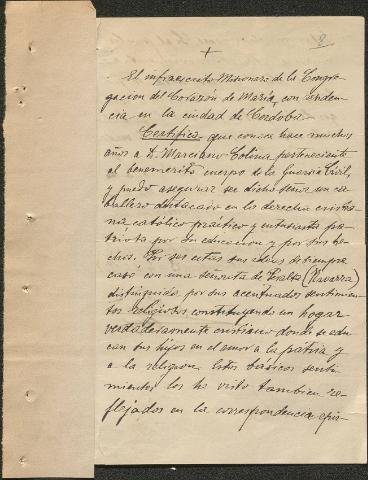 8
+
El infraescrito Misionero de la Congre-
gacion del Corazón de María, con residen-
cia en la ciudad de Cordoba.
Certifica que conoce hace muchos
años a D. Marciano Colina perteneciente
al benemerito cuerpo de la Guardia Civil,
y puedo asegurar ser dicho señor un ca-
ballero destacado en lo derecha cristia-
na católico práctico y entusiasta pa-
triota por su educacion y por sus he-
chos. Por ser estas sus ideas de siempre
casó con una señorita de Peralta (Navarra)
distinguida por sus acentuados sentimien-
tos religiosos constituyendo un hogar
verdaderamente cristiano donde se edu-
can sus hijos en el amor a la patria y
a la religion. Estos básicos senti-
mientos los he visto tambien re-
flejados en la correspondencia epis-